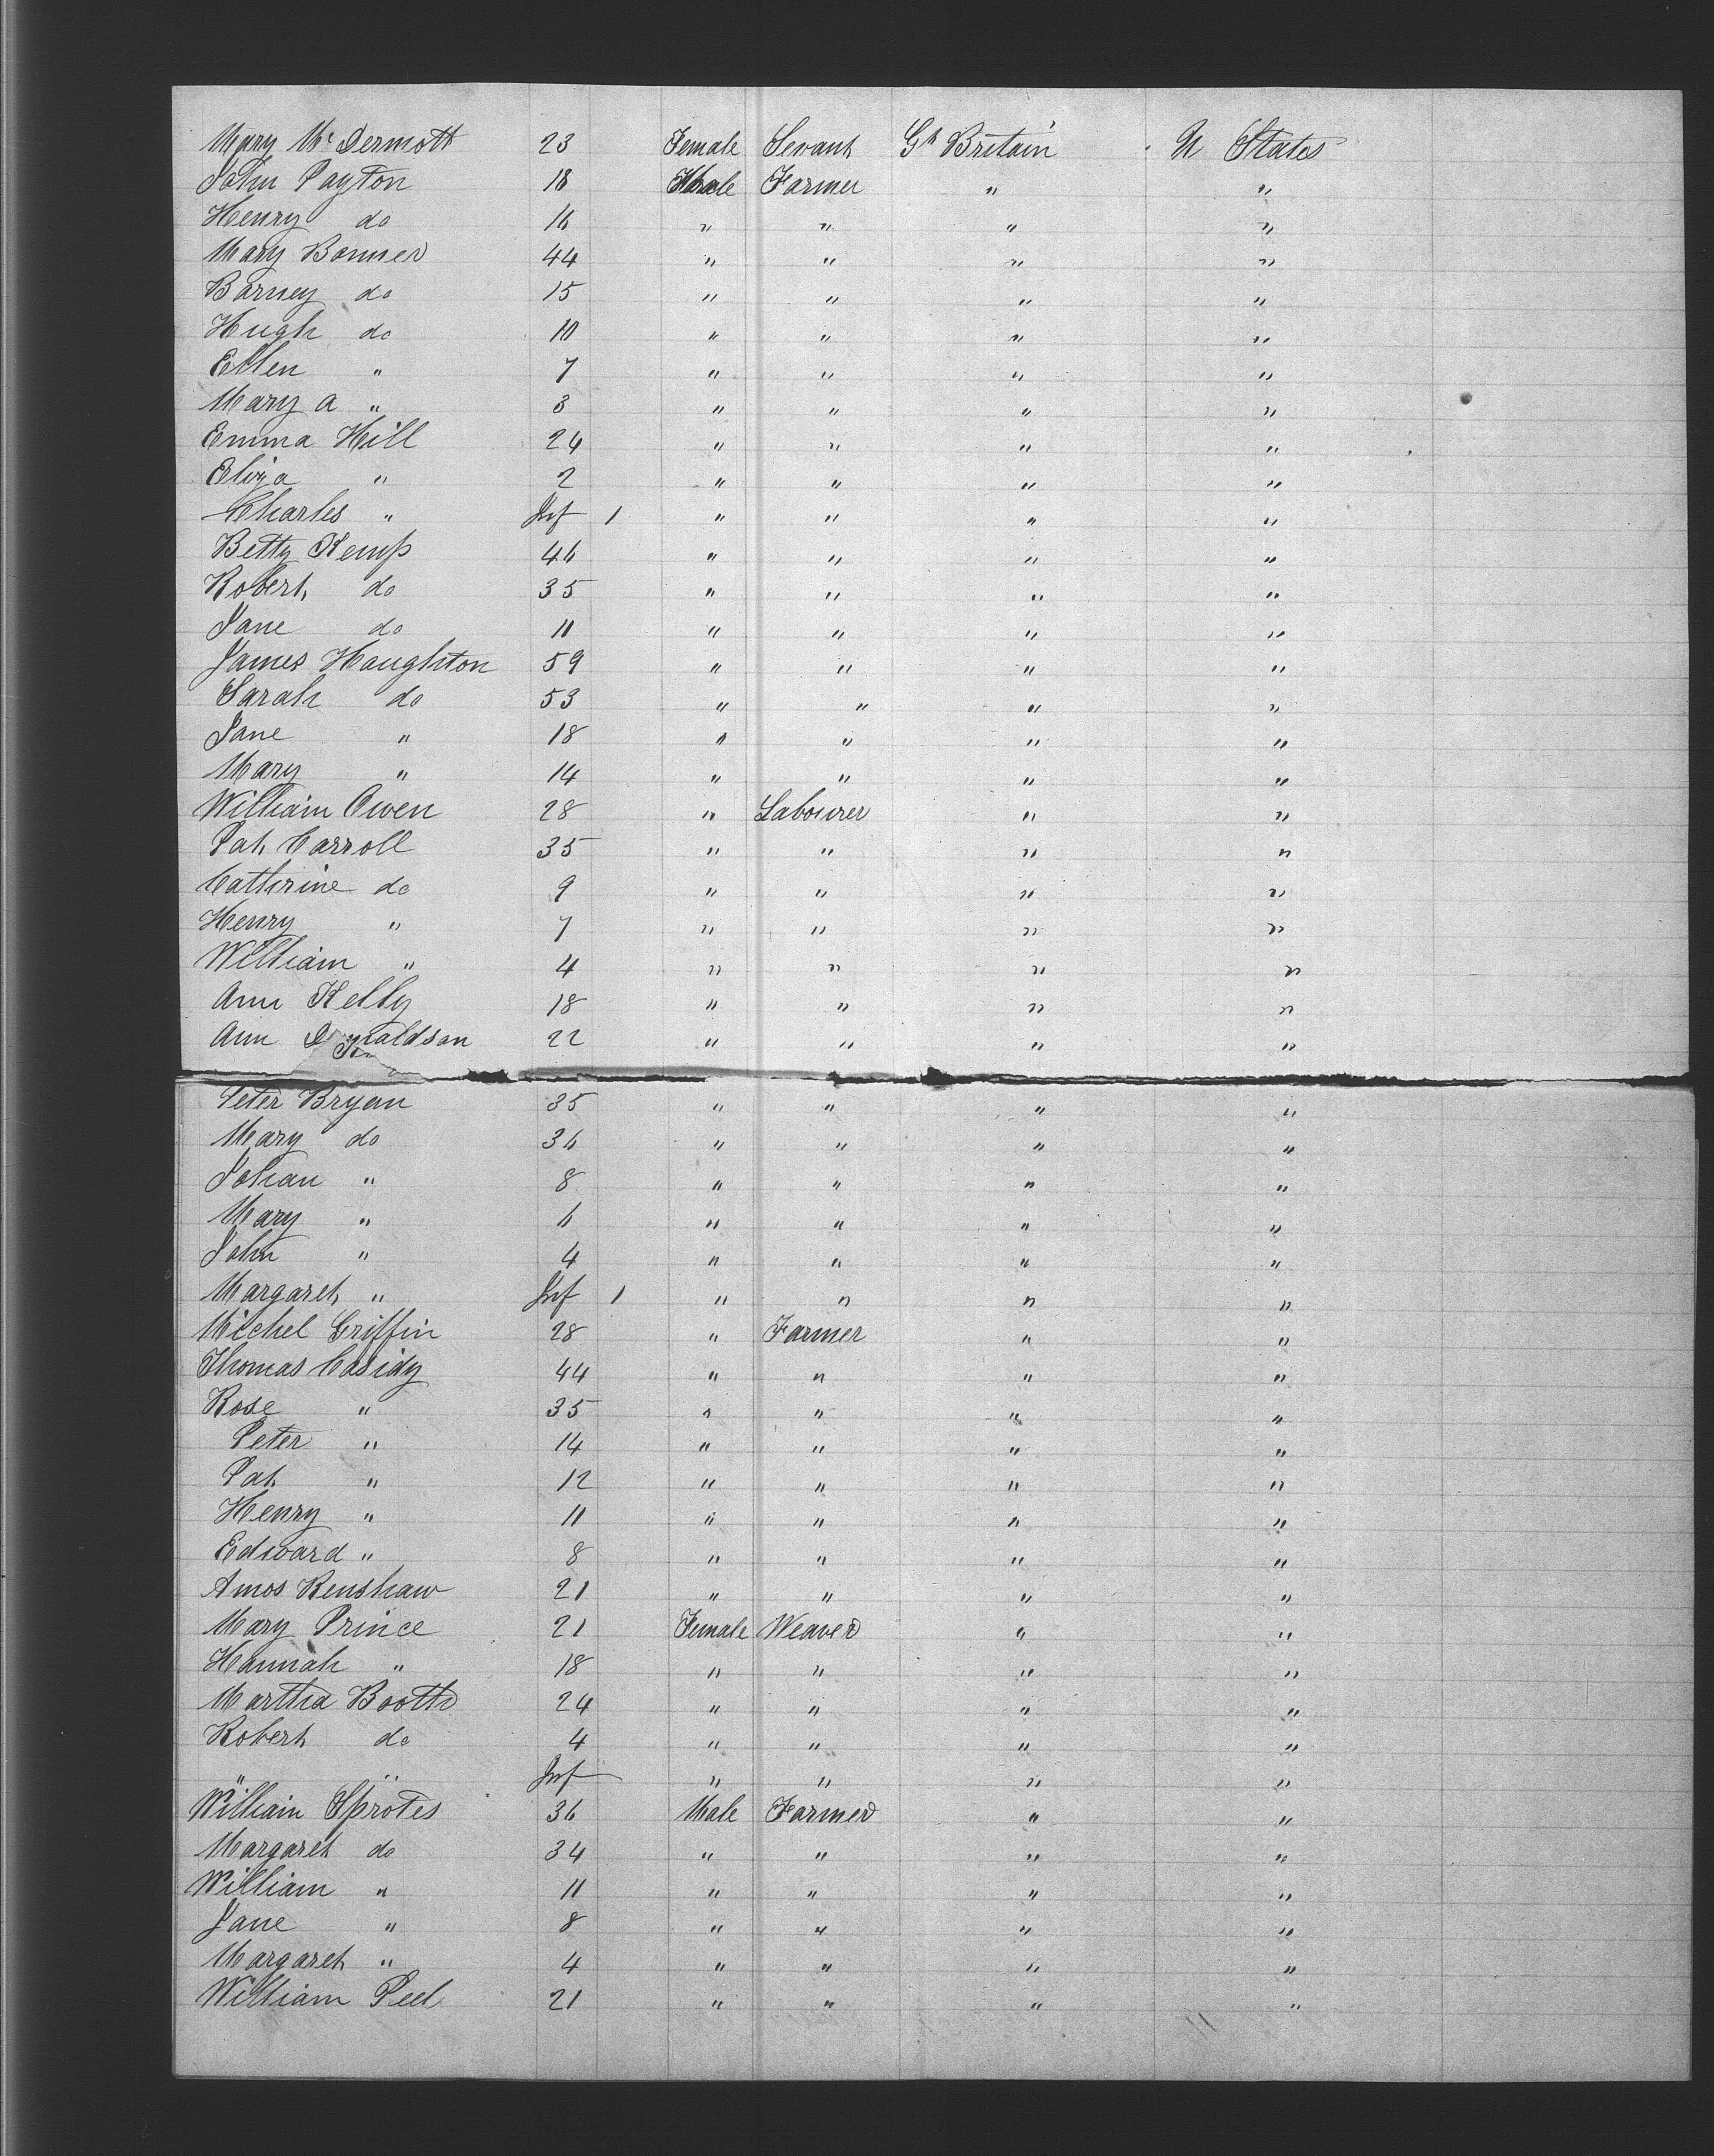 Mary McDermott 23 Female Sevant Gt Britain U States
John Payton 18 Male Farmer " "
Henry do 16 " " " "
Mary Bonner 44 " " " "
Barney do 15 " " " "
Hugh do 10 " " " "
Ellen " 7 " " " "
Mary A " 3 " " " "
Emma Hill 24 " " " "
Eliza " 2 " " " "
Charles " Inf 1 " " " "
Betty Kemp 46 " " " "
Robert do 35 " " " "
Jane do 11 " " " "
James Haughton 59 " " " "
Sarah do 53 " " " "
Jane " 18 " " " "
Mary " 14 " " " "
William Owen 28 " Labourer " "
Pat Carroll 35 " " " "
Catherine do 9 " " " "
Henry " 7 " " " "
William " 4 " " " "
Ann Kelly 18 " " " "
Ann Donaldson 22 " " " "
Peter Bryan 35 " " " "
Mary do 36 " " " "
Johan " 8 " " " "
Mary " 6 " " " "
John " 4 " " " "
Margaret " Inf 1 " " " "
Michel Griffin 28 " Farmer " "
Thomas Casidy 44 " " " "
Rose " 35 " " " "
Peter " 14 " " " "
Pat " 12 " " " "
Henry " 11 " " " "
Edward " 8 " " " "
Amos Renshaw 21 " " " "
Mary Prince 21 Female Weaver " "
Hannah " 18 " " " "
Martha Booth 24 " " " "
Robert do 4 " " " "
" " Inf " " " "
William Sprotes 36 Male Farmer " "
Margaret do 34 " " " "
William " 11 " " " "
Jane " 8 " " " "
Margaret " 4 " " " "
William Peel 21 " " " "